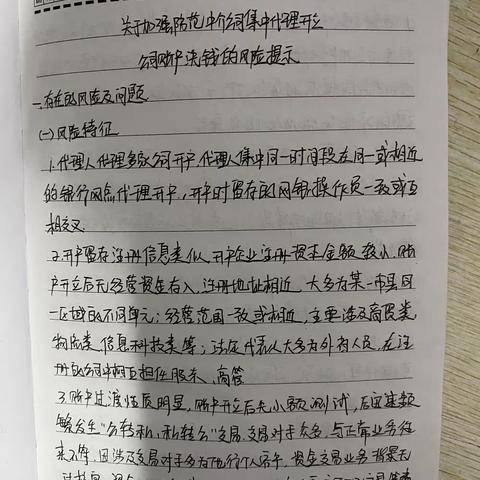 关于加强防范中介公司集中代理开立
公司账户洗钱的风险提示
一、存在的风险及问题
(一)风险特征
1.代理人代理多家公司开户,代理人集中同一时间段在同一或相近
的银行网点代理开户,开户时留存的网银操作员一致或互
相交叉
2.开户留存注册信息类似,开户企业注册资本金额较小,账
户开立后无经营资金存入,注册地址相近,大多为某一市县同
一区域的不同单元;经营范围一致或相近,主要涉及商贸类
物流类、信息科技类等;法定代表人大多为外初人员,在注
册的公司中相互担任股东、高管
3.账户过渡性质明显,账户开立后先小额测试,后迅速频
繁发生“公转私、私转公”交易,交易对手众多,与正常业务往
来不符,因涉及交易对手多为他行个人客户,资金交易业务背景无